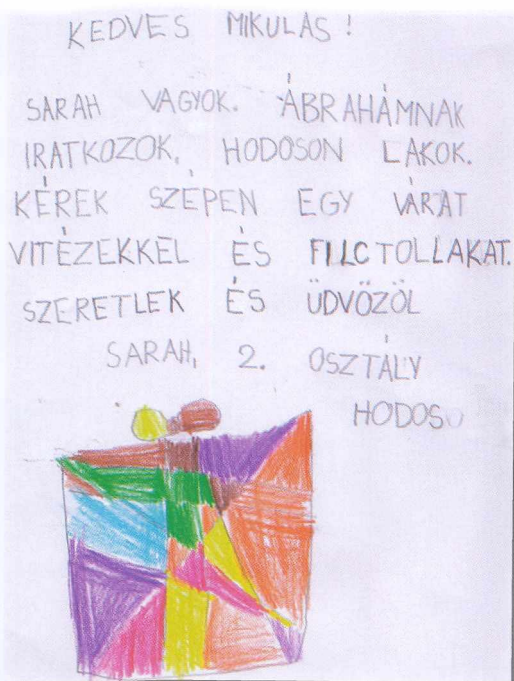 KEDVES MIKULÁS!
SARAH VAGYOK. ÁBRAHÁMNAK
IRATKOZOK, HODOSON LAKOK.
KÉREK SZÉPEN EGY VÁRAT
VITÉZEKKEL ÉS FILCTOLLAKAT.
SZERETLEK ÉS ÜDVÖZÖL
SARAH, 2. OSZTÁLY
HODOS